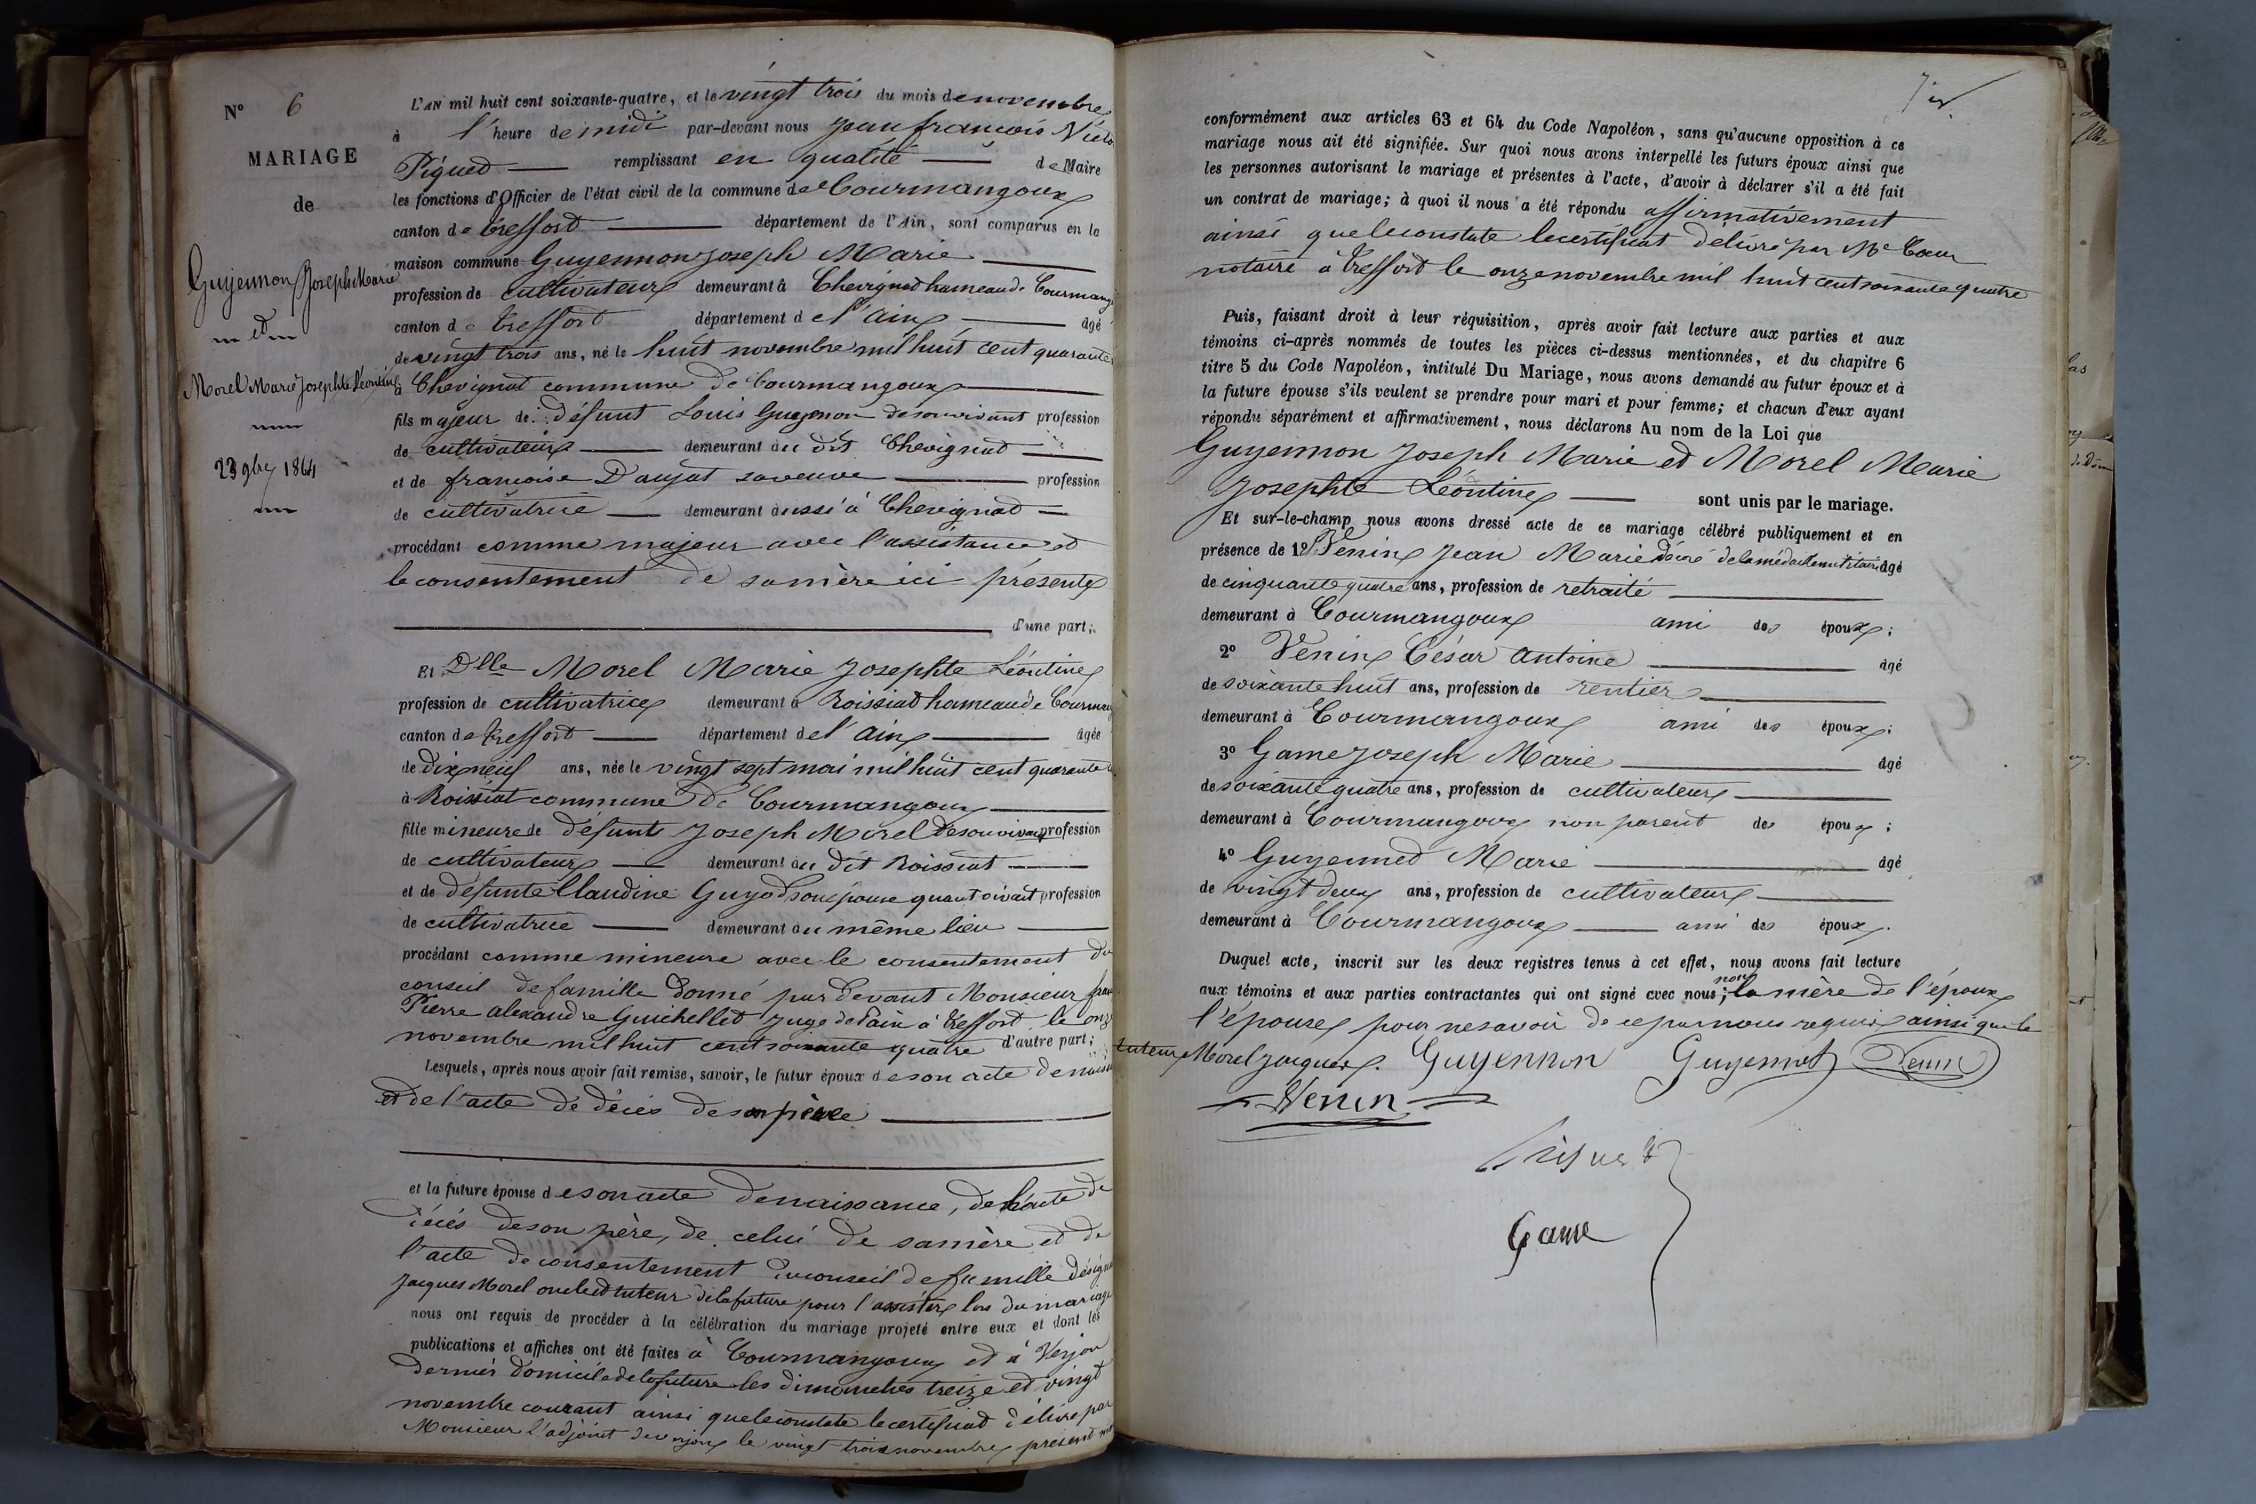 N° 6
MARIAGE
de
Guyennon Joseph Marie
et
Morel Marie Josephte Léontine
23 9bre 1864
L'AN mil huit cent soixante-quatre, et le vingt trois du mois de novembre
à l'heure de midi par-devant nous Jean françois
Piquet remplissant en qualité de Maire
les fonctions d'Officier de l'état civil de la commune de Courmangoux
canton de treffort département de l'Ain, sont comparus en la
maison commune Guyennon Joseph Marie
profession de cultivateur demeurant à Chevignat hameau de Courmang
canton de treffort département de l'Ain âgé
de vingt trois ans, né le huit novembre mil huit cent quarante
à Chevignat commune de Courmangoux
fils majeur de défunt Louis Guyennon de son vivant profession
de cultivateur demeurant au dit Chevignat
et de françoise Daujat sa veuve profession
de cultivatrice demeurant aussi à Chevignat
procédant comme majeur avec l'assistance et
le consentement de sa mère ici présente
d'une part;
Et Dlle Morel Marie Josephte Léontine
profession de cultivatrice demeurant à Roissiat hameau de Courman
canton de treffort département de l'Ain âgée
de dix neuf ans, née le vingt sept mai mil huit cent quarante
à Roissiat commune de Courmangoux
fille mineure de défunt Joseph Morel de son vivant profession
de cultivateur demeurant au dit Roissiat
et de défunte Claudine Guyod son épouse quant vivait profession
de cultivatrice demeurant au même lieu
procédant comme mineure avec le consentement du
conseil de famille donné par devant Monsieur
Pierre alexandre Guichellet juge de Paix à treffort le onze
novembre mil huit cent soixante quatre d'autre part;
Lesquels, après nous avoir fait remise, savoir, le futur époux de son acte de
et de l'acte de décès de son père
et la future épouse de son acte de naissance, de l'acte de
décès de son père, de celui de sa mère et de
l'acte de consentement du conseil de famille
Jacques Morel oncle et tuteur de la future pour l'assister lors du mariage
nous ont requis de procéder à la célébration du mariage projeté entre eux et dont les
publications et affiches ont été faites à Courmangoux et à Verjon
dernier domicile de la future les dimanches treize et vingt
novembre courant ainsi que le constate le certificat délivré par
Monsieur l'adjoint de verjon le vingt trois novembre présent
conformément aux articles 63 et 64 du Code Napoléon, sans qu'aucune opposition à ce
mariage nous ait été signifiée. Sur quoi nous avons interpellé les futurs époux ainsi que
les personnes autorisant le mariage et présentes à l'acte, d'avoir à déclarer s'il a été fait
un contrat de mariage; à quoi il nous a été répondu affirmativement
ainsi que le constate le certificat délivré par Me
notaire à treffort le onze novembre mil huit cent soixante quatre
Puis, faisant droit à leur réquisition, après avoir fait lecture aux parties et aux
témoins ci-après nommés de toutes les pièces ci-dessus mentionnées, et du chapitre 6
titre 5 du Code Napoléon, intitulé Du Mariage, nous avons demandé au futur époux et à
la future épouse s'ils veulent se prendre pour mari et pour femme; et chacun d'eux ayant
répondu séparément et affirmativement, nous déclarons Au nom de la Loi que
Guyennon Joseph Marie et Morel Marie
Josephte Léontine sont unis par le mariage.
Et sur-le-champ nous avons dressé acte de ce mariage célébré publiquement et en
présence de 1° Venin Jean Marie décoré de la médaille militaire âgé
de cinquante quatre ans, profession de retraité
demeurant à Courmangoux ami des époux;
2° Venin César Antoine âgé
de soixante huit ans, profession de rentier
demeurant à Courmangoux ami des époux;
3° Game Joseph Marie âgé
de soixante quatre ans, profession de cultivateur
demeurant à Courmangoux non parent des époux;
4° Guyennet Marie âgé
de vingt deux ans, profession de cultivateur
demeurant à Courmangoux ami des époux.
Duquel acte, inscrit sur les deux registres tenus à cet effet, nous avons fait lecture
aux témoins et aux parties contractantes qui ont signé avec nous; non la mère de l'époux
l'épouse pour ne savoir de ce par nous requis ainsi que le
tuteur Morel Jacques. Guyennon Guyennet Venin
Venin
Piquet
Game